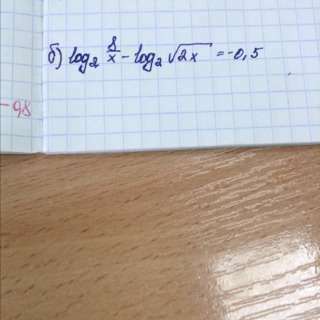 б) log₂ 8/x - log₂ √2x = -0,5
-98